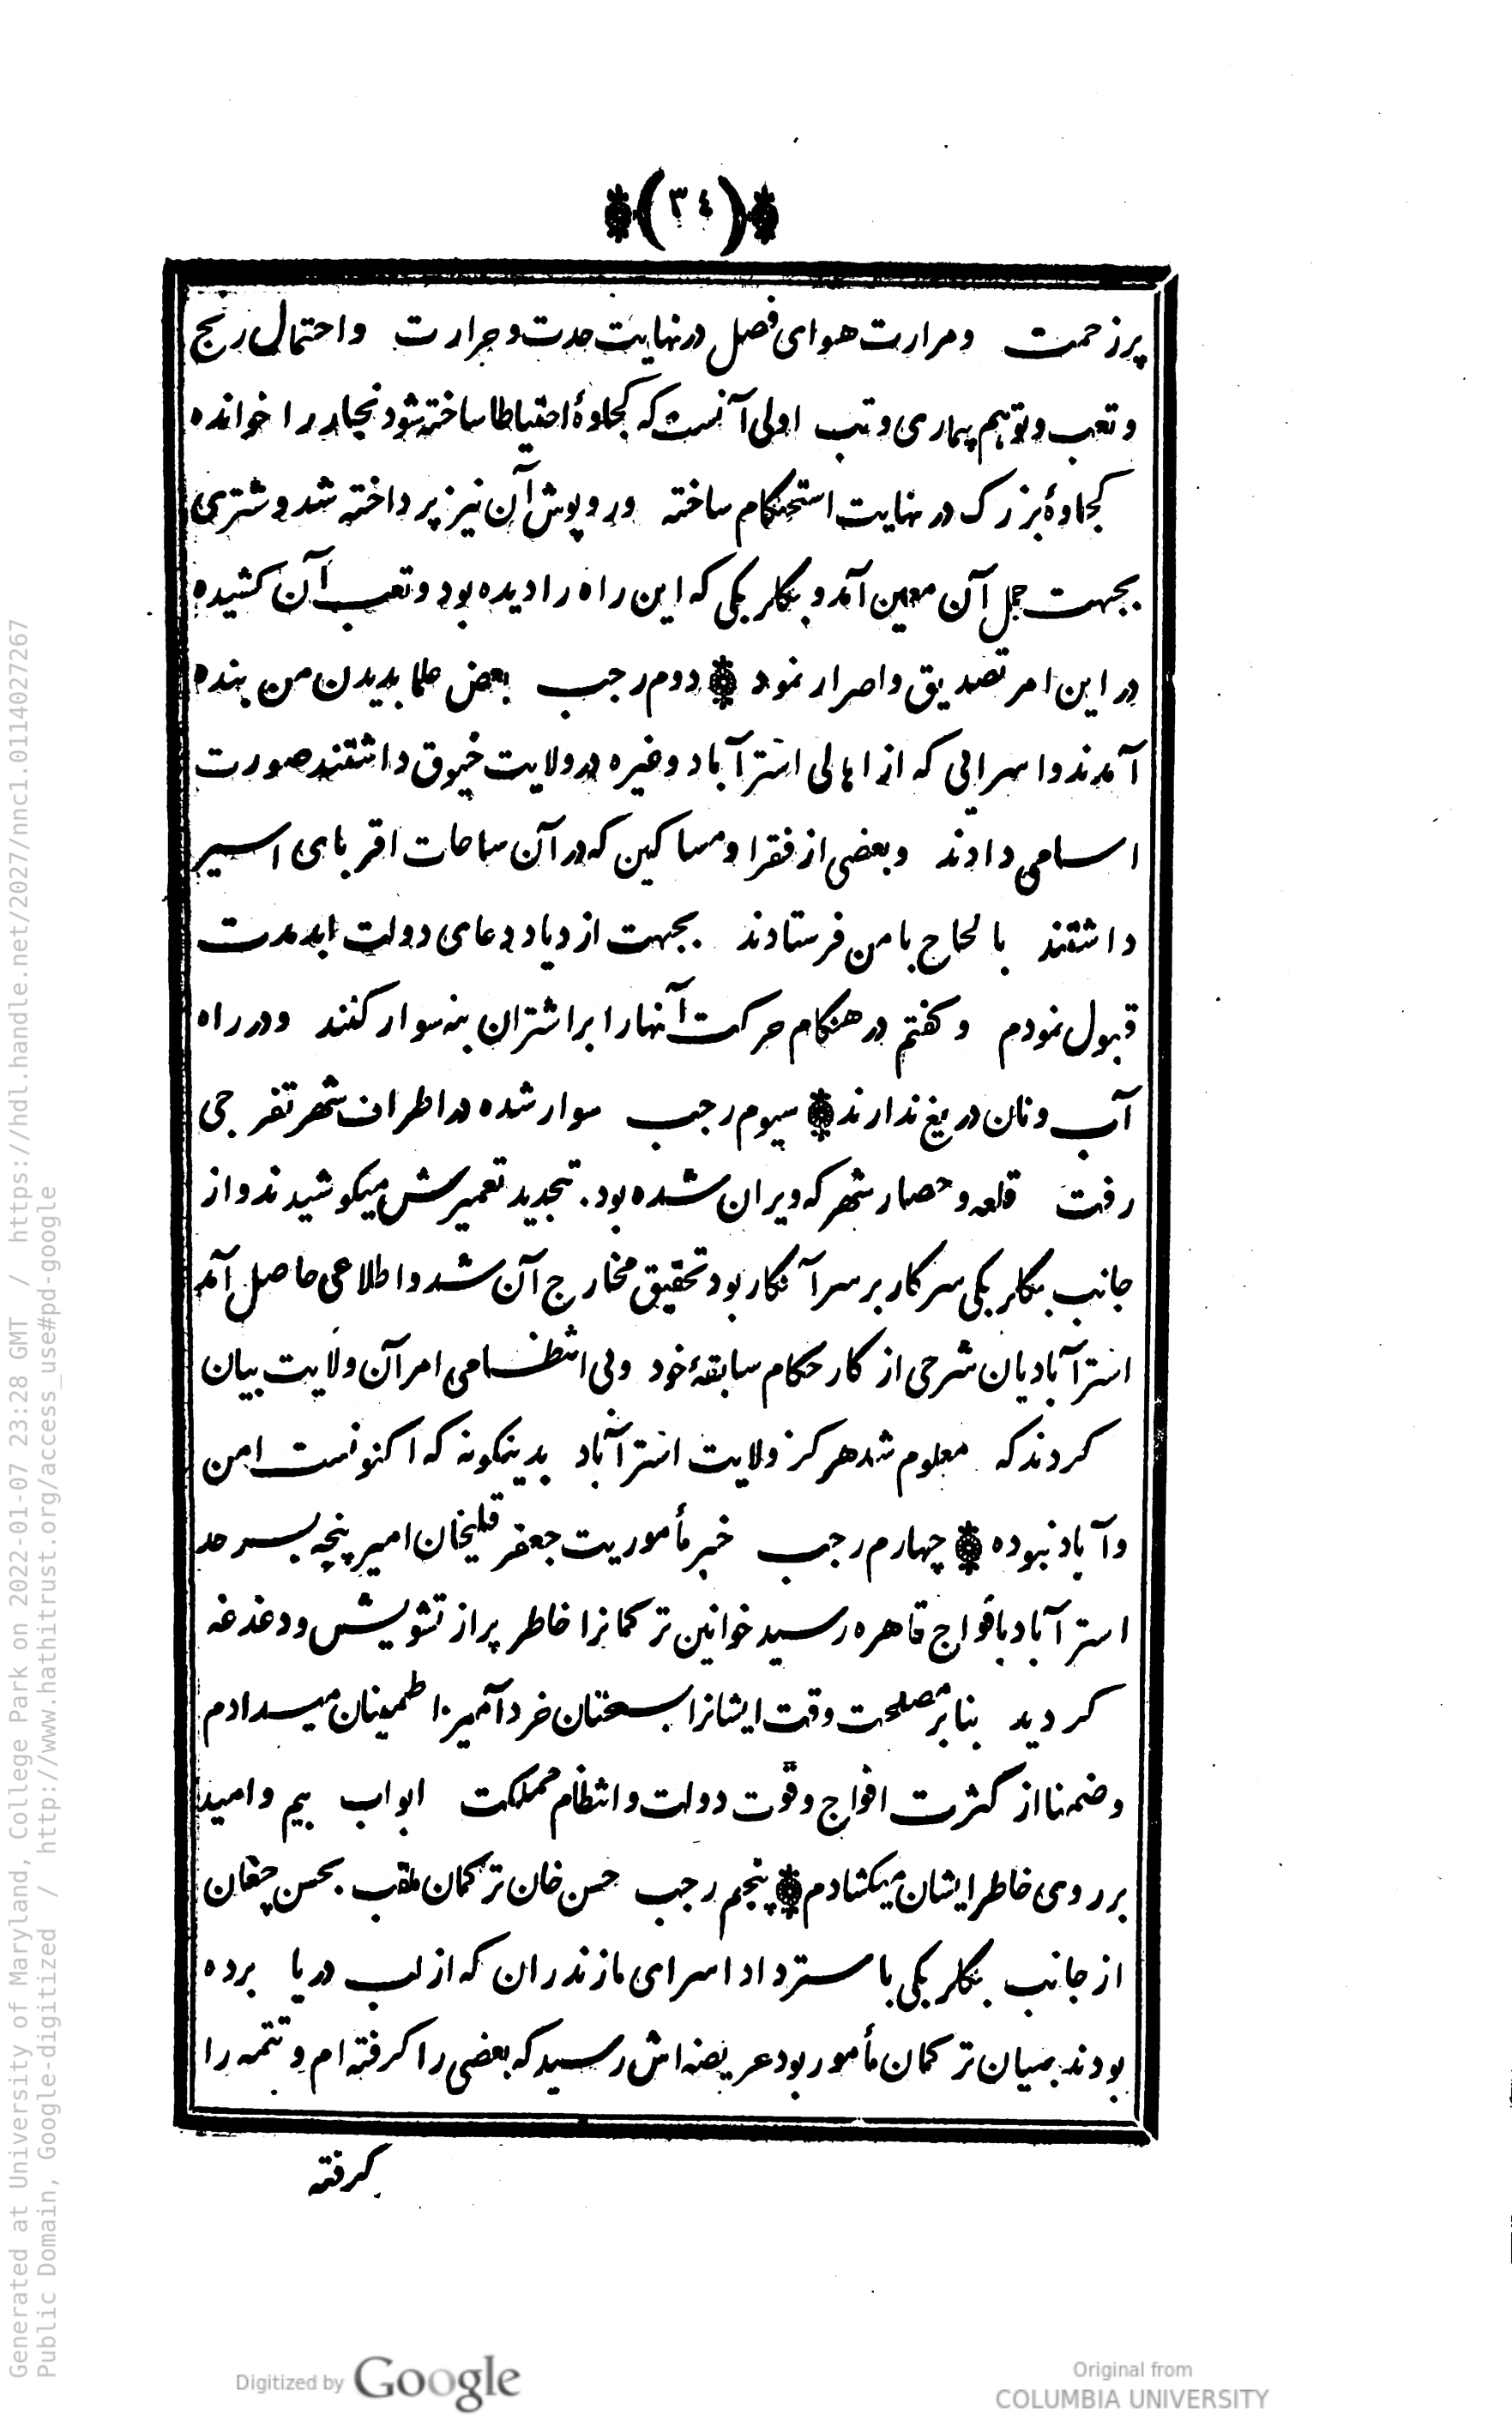 (٣٤)
پرزحمت ومرارت هوای فصل درنهایت حدت وحرارت واحتمال رنج
وتعب وتوهم بیماری وتب اولی آنست که کجاوهٔ احتیاطا ساخته شود نجار را خوانده
کجاوهٔ بزرک در نهایت استحکام ساخته وروپوش آن نیز پرداخته شد وشتری
بجهت حمل آن معین آمد و بکلر بکی که این راه را دیده بود وتعب آن کشیده
در این امر تصدیق واصرار نمود دوم رجب بعض علما بدیدن من بنده
آمدند واسرائی که از اهالی استرآباد وغیره درولایت خیوق داشتند صورت
اسامی دادند وبعضی از فقرا ومساکین که در آن ساحات اقربای اسیر
داشتند بالحاح بامن فرستادند بجهت ازدیاد دعای دولت ابد مدت
قبول نمودم وکفتم در هنکام حرکت آنهارا براشتران بنه سوار کنند ودر راه
آب ونان دریغ ندارند سیوم رجب سوار شده در اطراف شهر تفرجی
رفت قلعه وحصار شهر که ویران شده بود بتجدید تعمیرش میکوشیدند واز
جانب بکلر بکی سرکار بر سر آنکار بود تحقیق مخارج آن شد واطلاعی حاصل آمد
استرآبادیان شرحی از کار حکام سابقهٔ خود وبی انتظامی امر آن ولایت بیان
کردند که معلوم شد هرکز ولایت استرآباد بدینکونه که اکنونست امن
وآباد نبوده چهارم رجب خبر مأموریت جعفر قلیخان امیر پنجه بسرحد
استرآباد باافواج قاهره رسید خوانین ترکمانرا خاطر پراز تشویش ودغدغه
کردید بنابر مصلحت وقت ایشانرا بسخنان خردآمیز اطمینان میدادم
وضمنا از کثرت افواج وقوت دولت وانتظام مملکت ابواب بیم وامید
بر روی خاطر ایشان میکشادم پنجم رجب حسن خان ترکمان ملقب بحسن چغان
از جانب بکلر بکی با سترداد اسرای مازندران که از لب دریا برده
بودند بمیان ترکمان مأمور بود عریضه اش رسید که بعضی را کرفته ام وتتمه را
کرفته
Generated at University of Maryland, College Park on 2022-01-07 23:28 GMT / https://hdl.handle.net/2027/nnc1.0114027267
Public Domain, Google-digitized / http://www.hathitrust.org/access_use#pd-google
Digitized by Google
Original from
COLUMBIA UNIVERSITY